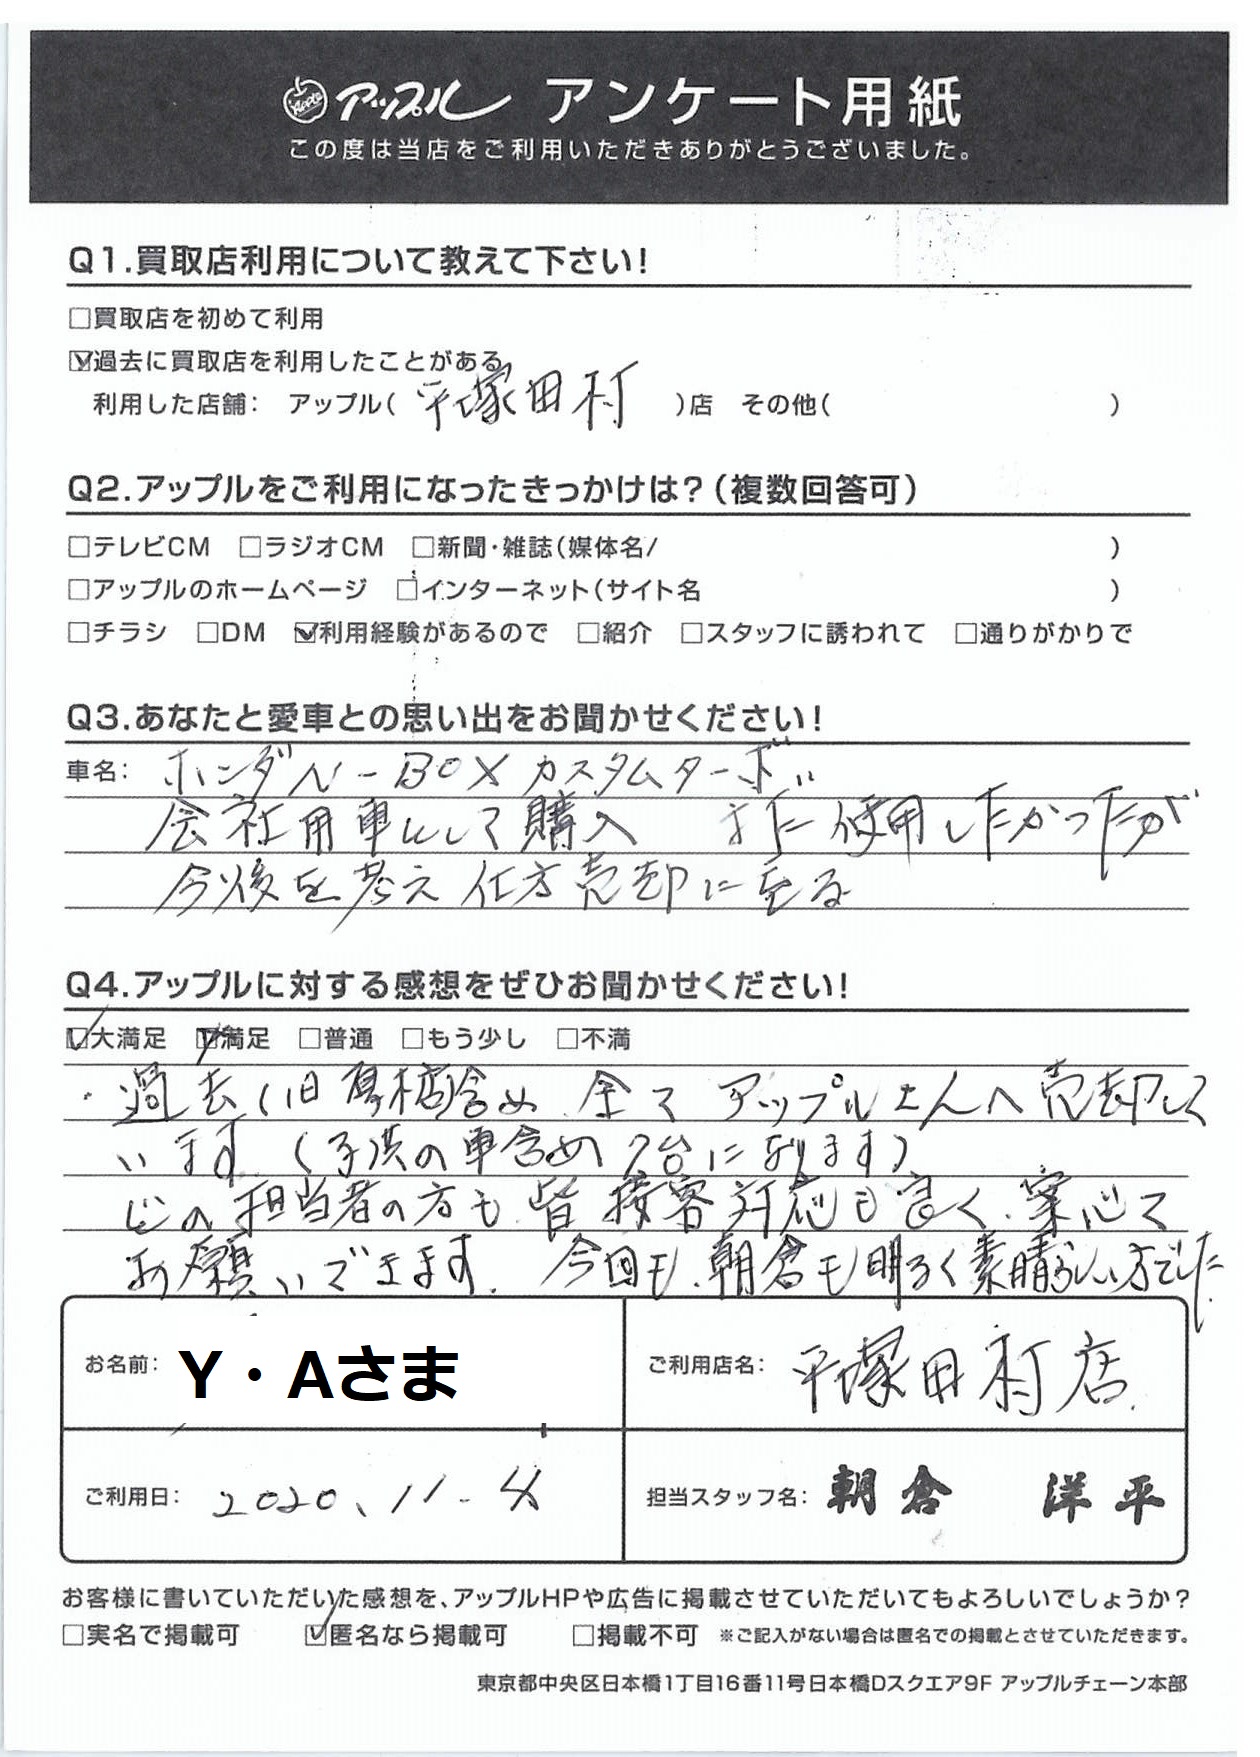 Apple アップル アンケート用紙
この度は当店をご利用いただきありがとうございました。
Q1.買取店利用について教えて下さい!
□買取店を初めて利用
☑過去に買取店を利用したことがある
利用した店舗: アップル( 平塚田村 )店 その他( )
Q2.アップルをご利用になったきっかけは?(複数回答可)
□テレビCM □ラジオCM □新聞・雑誌(媒体名/ )
□アップルのホームページ □インターネット(サイト名 )
□チラシ □DM ☑利用経験があるので □紹介 □スタッフに誘われて □通りがかりで
Q3.あなたと愛車との思い出をお聞かせください!
車名: ホンダN-BOXカスタムターボ
会社用車にして購入 まだ使用したかったが
今後を考え仕方売却に至る
Q4.アップルに対する感想をぜひお聞かせください!
☑大満足 ☑満足 □普通 □もう少し □不満
・過去(旧厚木店含め 全てアップルさんへ売却して
います。(子供の車含め7台になります)
どの担当者の方も皆接客対応も良く、安心して
お願いできます。 今回も、朝倉も明るく素晴らしい方でした。
お名前: Y・Aさま
ご利用店名: 平塚田村店
ご利用日: 2020.11.4
担当スタッフ名: 朝倉 洋平
お客様に書いていただいた感想を、アップルHPや広告に掲載させていただいてもよろしいでしょうか?
□実名で掲載可 ☑匿名なら掲載可 □掲載不可 ※ご記入がない場合は匿名での掲載とさせていただきます。
東京都中央区日本橋1丁目16番11号日本橋Dスクエア9F アップルチェーン本部